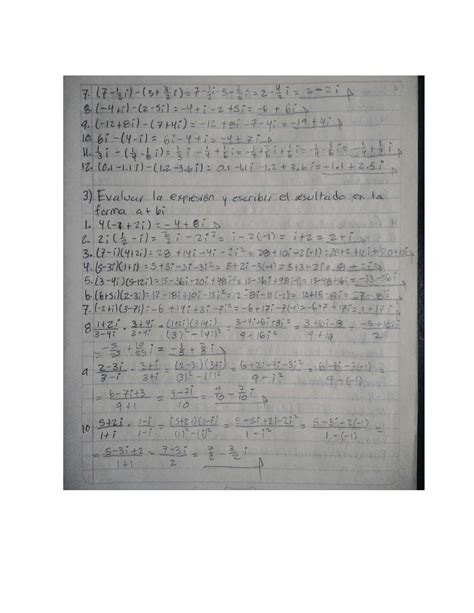 7. (7-½i)-(5+3/2i)=7-½i-5-3/2i=2-4/2i=2-2i
8. (-4+i)-(2-5i)=-4+i-2+5i=-6+6i
9. (-12+8i)-(7+4i)=-12+8i-7-4i=-19+4i
10. 6i-(4-i)=6i-4+i=-4+7i
12. (0.1-1.1i)-(1.2-3.6i)=0.1-1.1i-1.2+3.6i=-1.1+2.5i
3) Evaluar la expresión y escribir el resultado en la
forma a+bi
1. 4(-1+2i)=-4+8i
2. 2i(½-i)=2/2i-2i²=i-2(-1)=i+2=2+i
3. (7-i)(4+2i)=28+14i-4i-2i²=28+10i-2(-1)=
4. (5-3i)(1+i)=5+5i-3i-3i²=5+2i-3(-1)=5+3+2i=8+2i
5. (3-4i)(5-12i)=15-36i-20i+48i²=
6. (6+5i)(2-3i)=12-18i+10i-15i²=12-8i-15(-1)=12+15-8i=27-8i
7. (-2+i)(3-7i)=-6+14i+3i-7i²=-6+17i-7(-1)=-6+7+17i=1+17i
8 1+2i/3-4i · 3+4i/3+4i = (1+2i)(3+4i)/(3)²-(4i)² =
9 2-3i/3-i · 3+i/3+i = (2-3i)(3+i)/(3)²-(i)² = 6+2i-9i-3i²/9-i² =
= 6-7i+3/9+1 = 9-7i/10 = 9/10-7/10i
10 5+2i/1+i · 1-i/1-i = (5+2i)(1-i)/(1)²-(i)² = 5-5i+2i-2i²/1-i² = 5-3i-2(-1)/1-(-1) =
= 5-3i+2/1+1 = 7-3i/2 = 7/2-3/2i